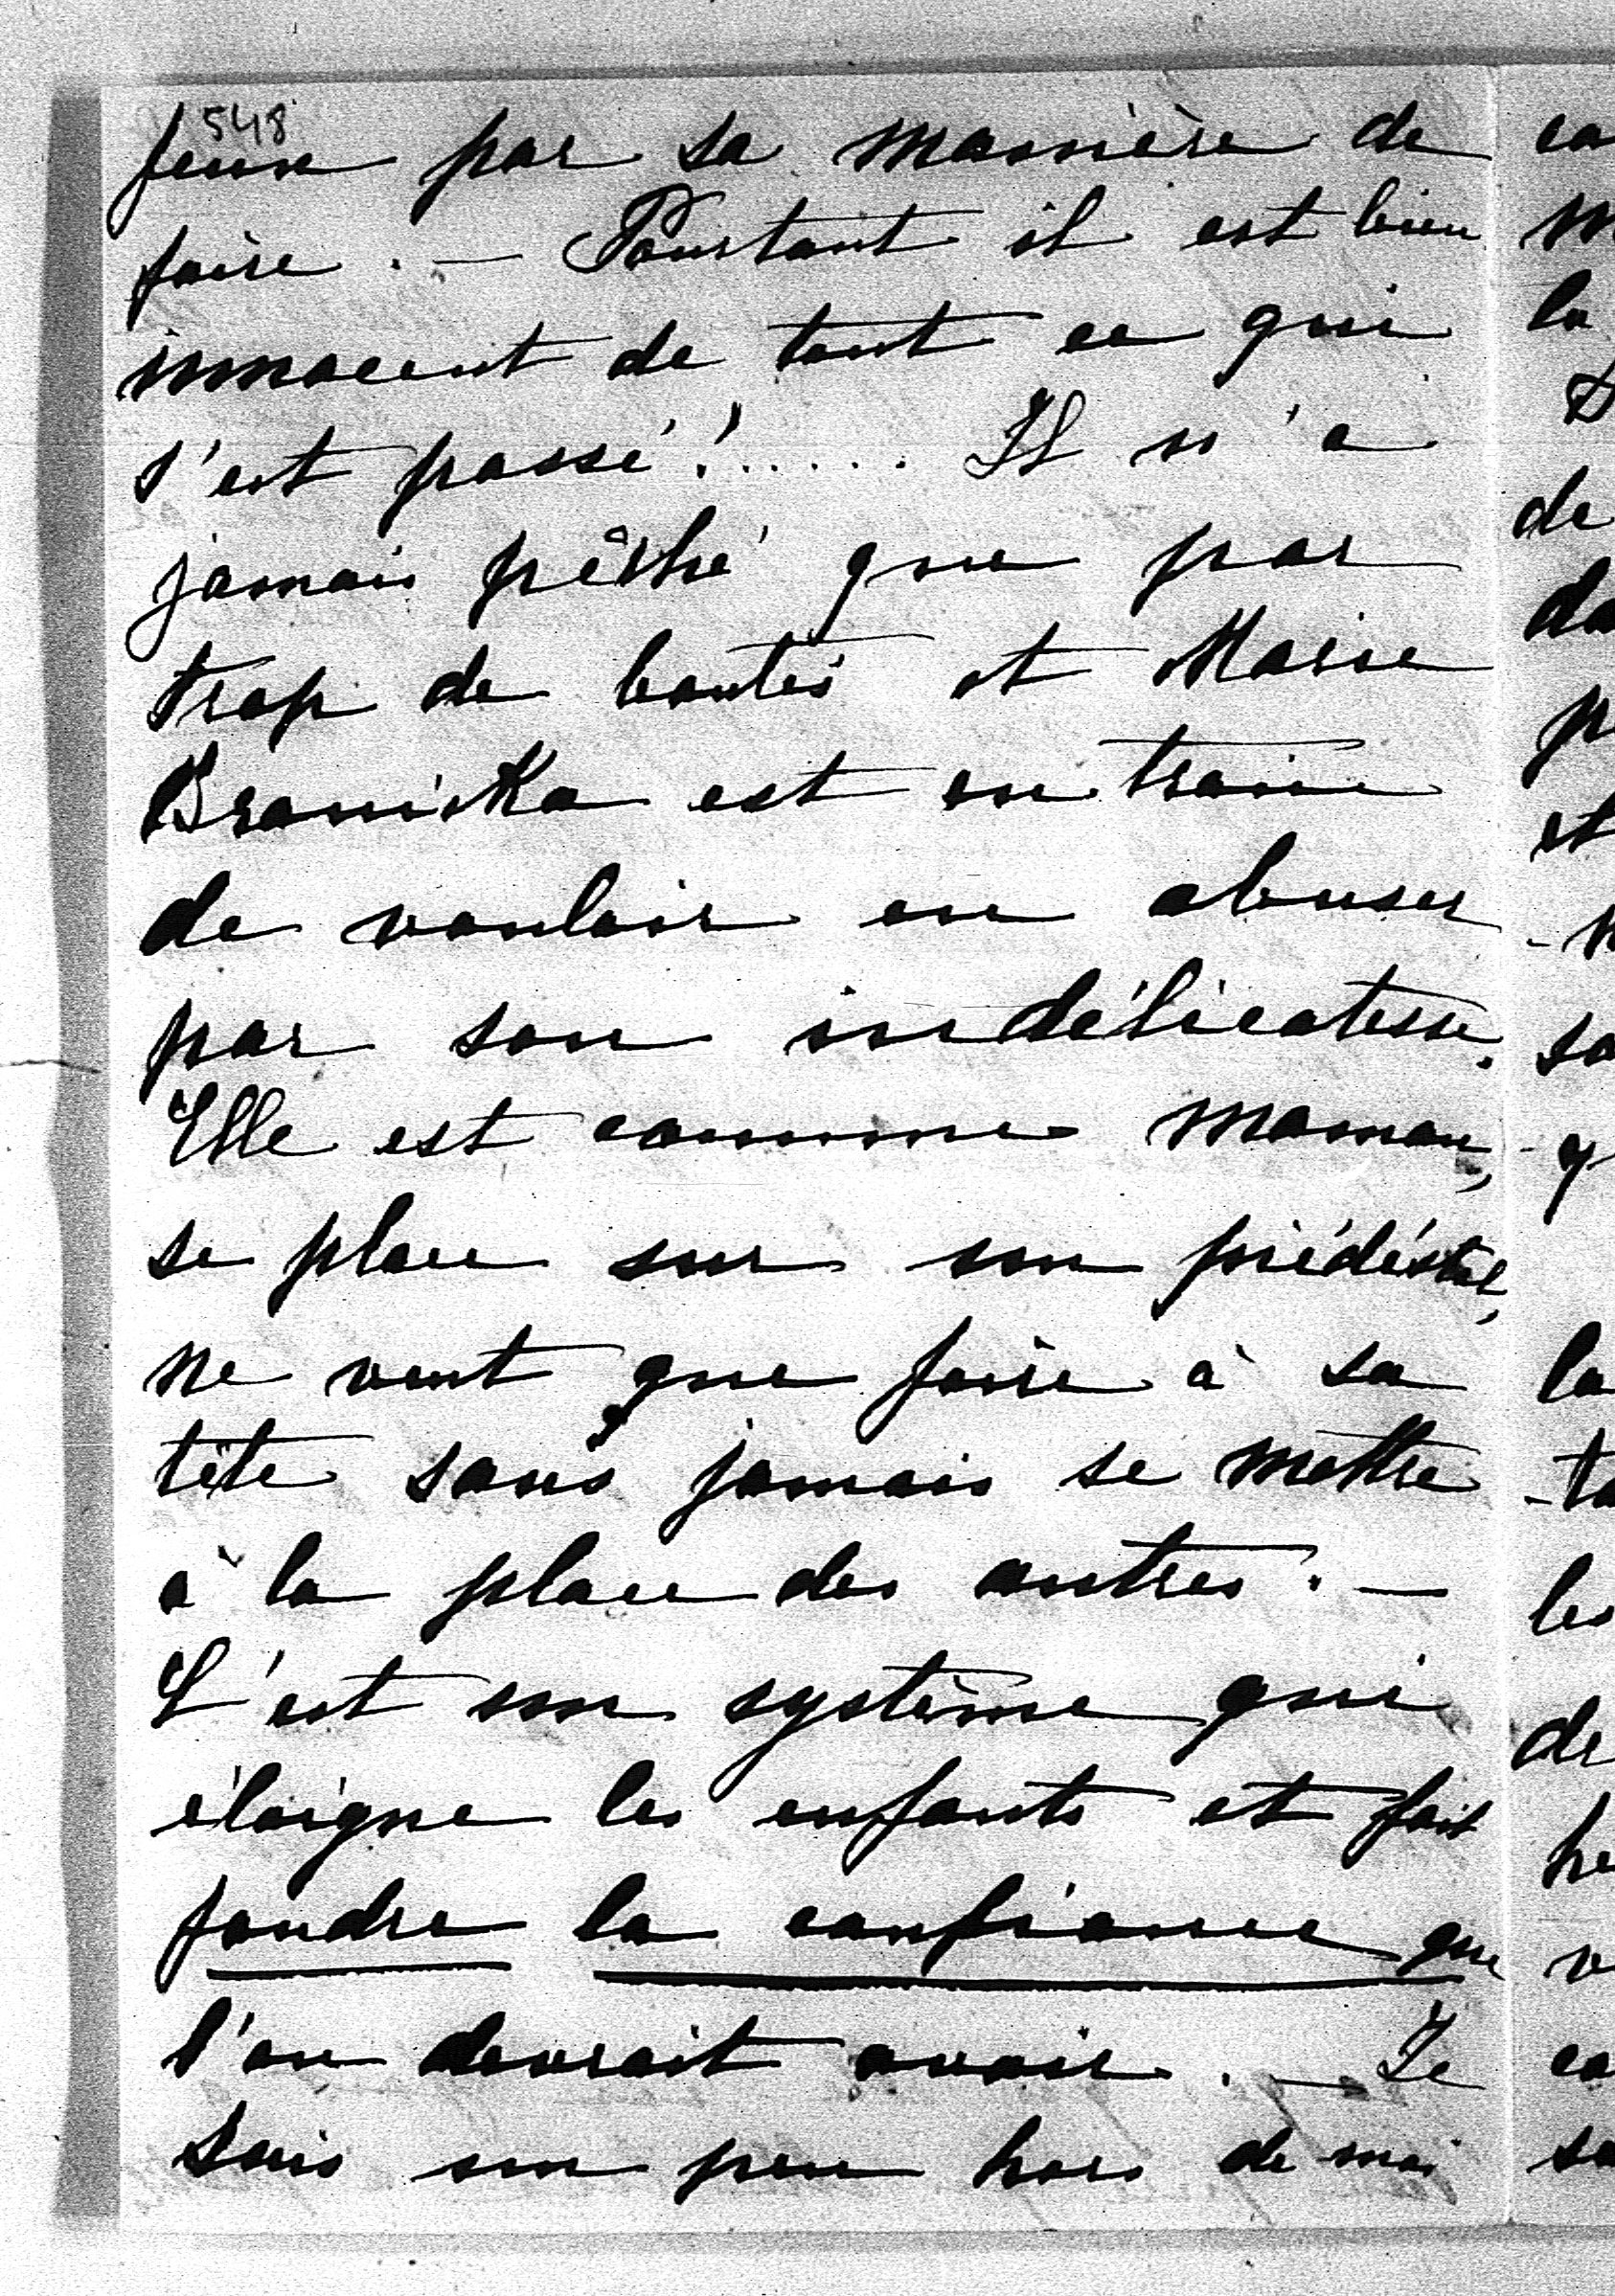 548
jeux par sa manière de
faire. — Pourtant il est bien
innocent de tout ce qui
s'est passé!...... Il n'a
jamais pêché que par
trop de bontés et Marie
Branicka est en train
de vouloir en abuser
par son indélicatesse.
Elle est comme maman,
se place sur un piédéstal,
ne veut que faire à sa
tête sans jamais se mettre
à la place des autres. —
C'est un système qui
éloigne les enfants et fait
fondre la confiance que
l'on devrait avoir. — Je
suis un peu hors de moi